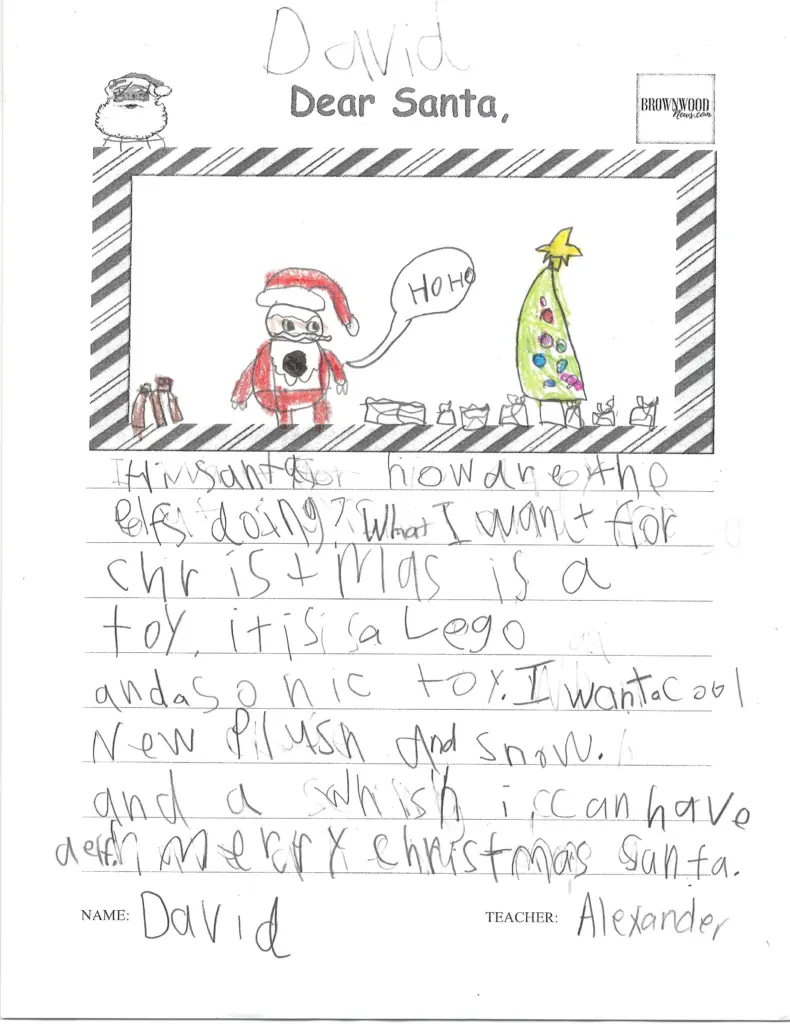 David
Dear Santa,
BROWNWOOD
News.com
HO HO
Hi santa how are the
elfs doing? What I want for
christMas is a
toy. it is a Lego
and a Sonic toy. I want a cool
New Plush And snow.
and a whish i can have
a elf. Merry christmas santa.
NAME: David TEACHER: Alexander